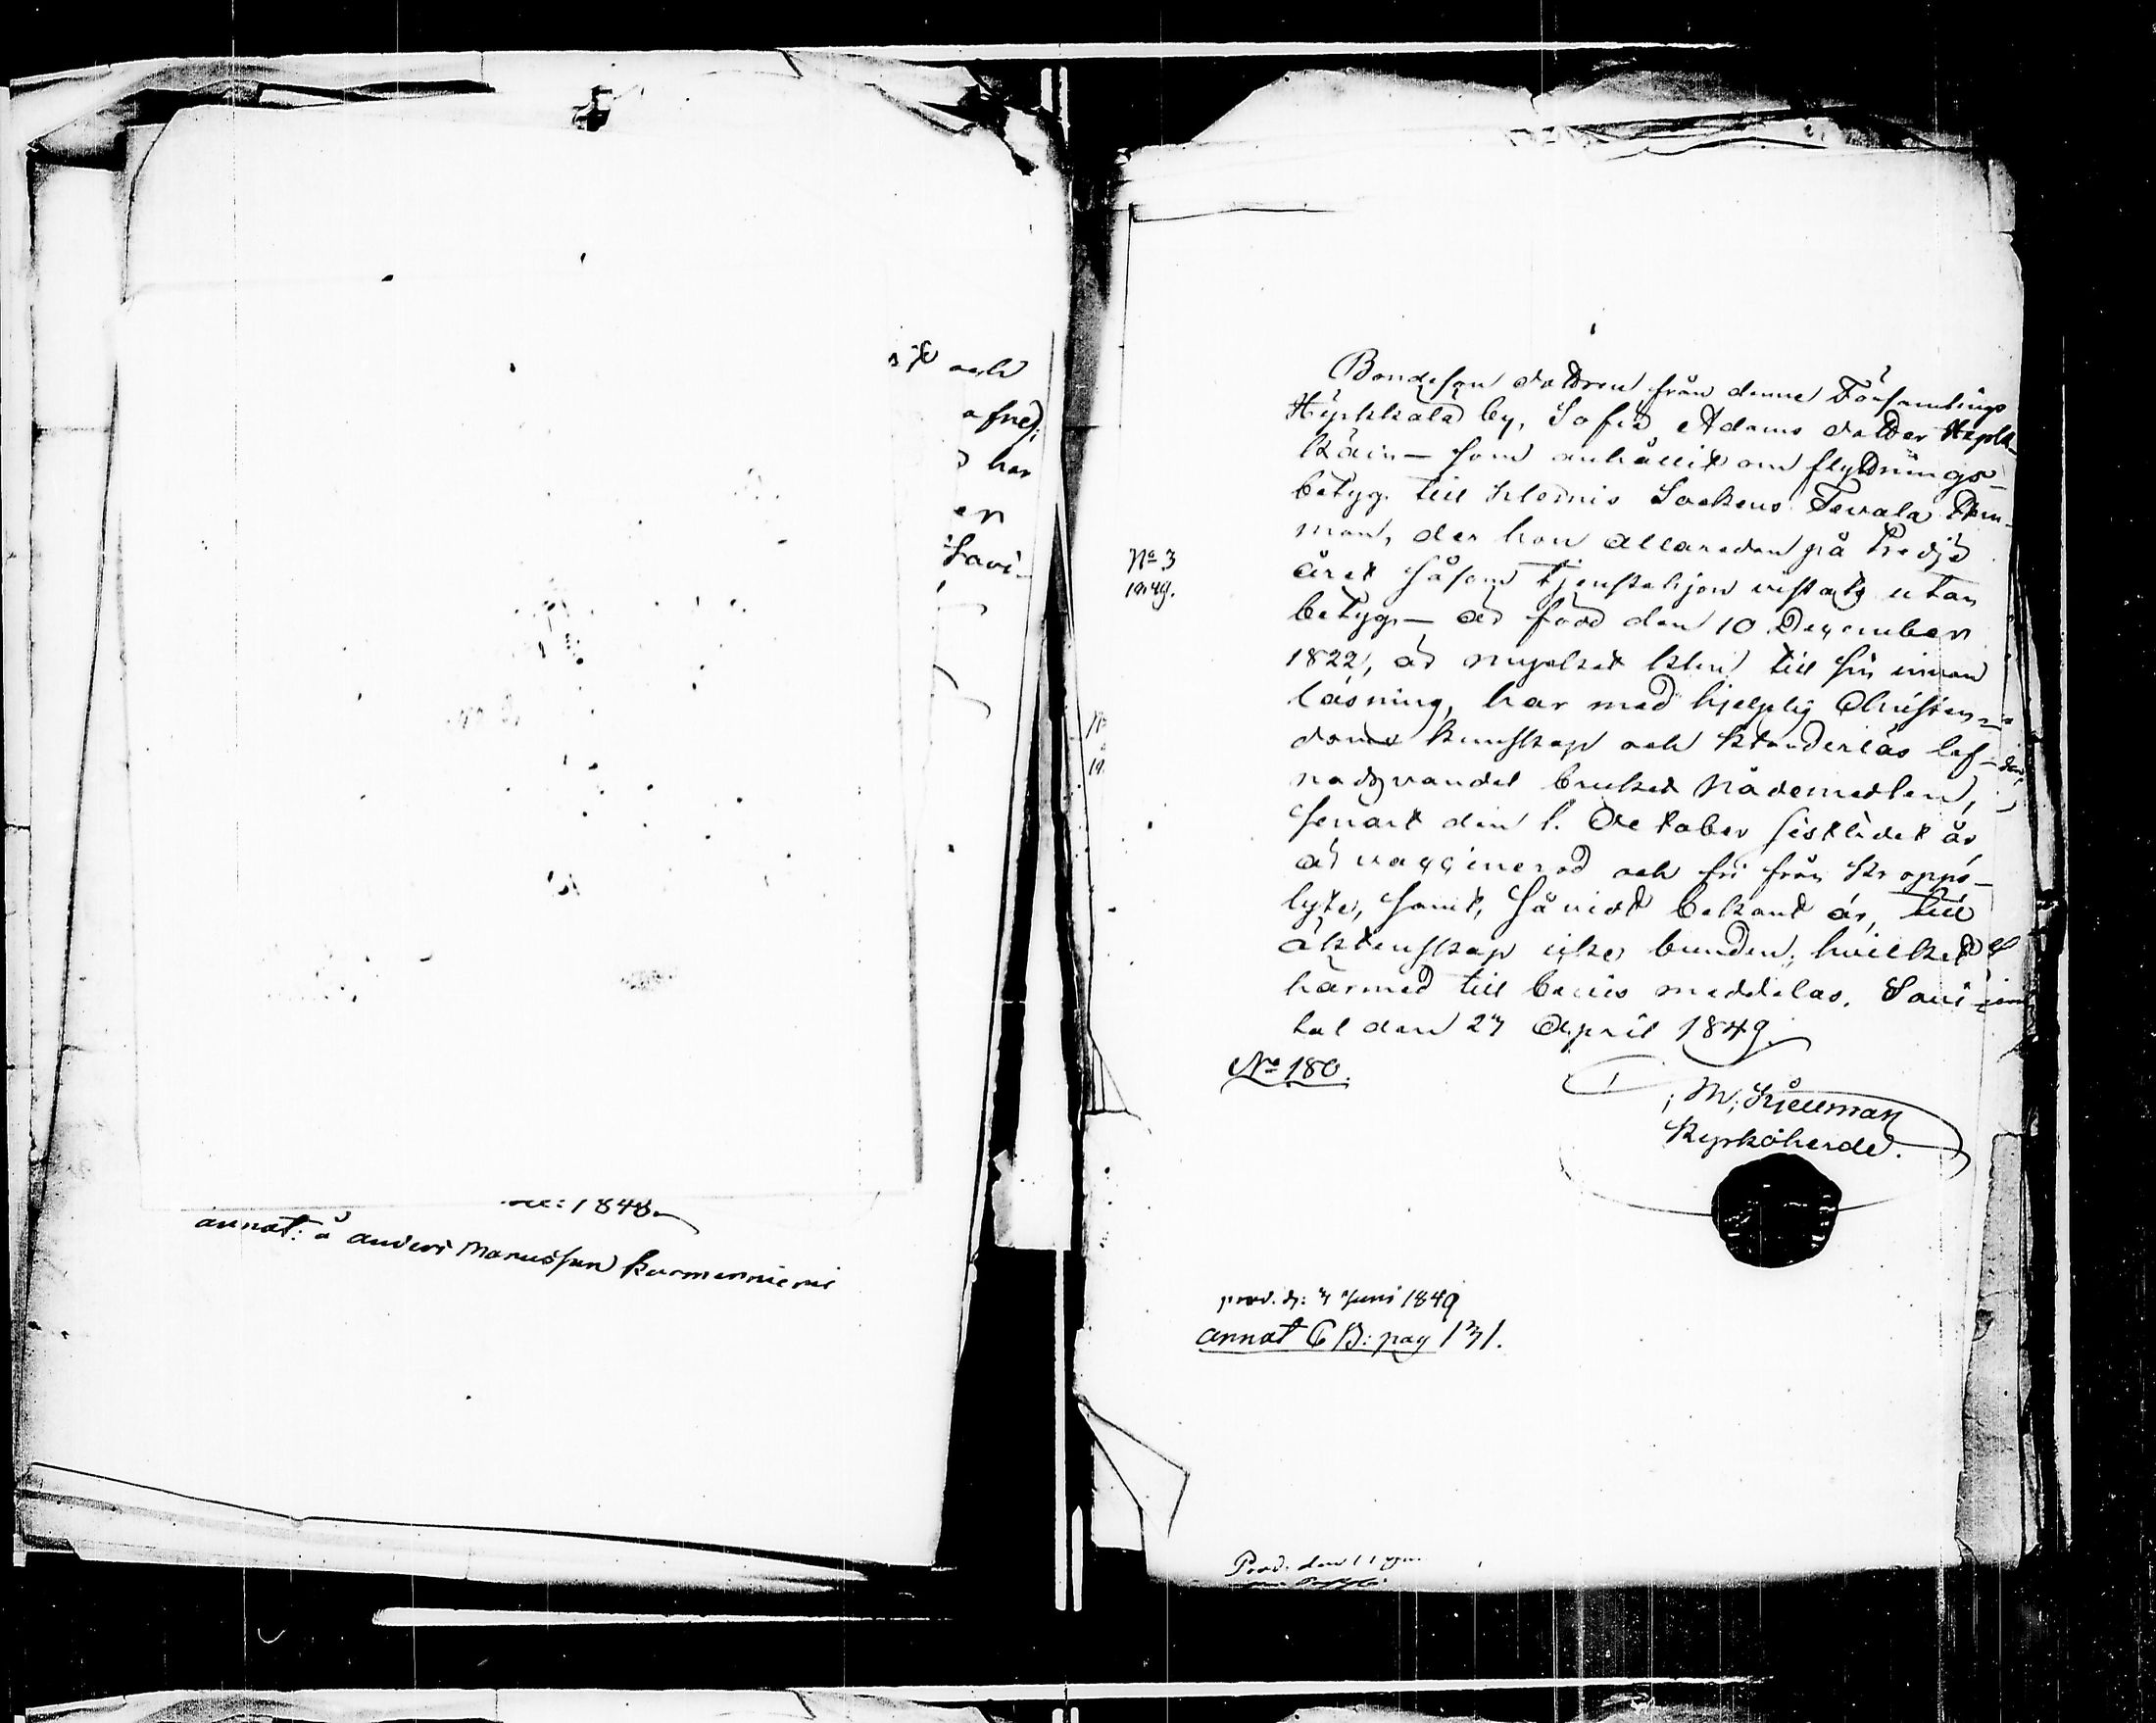 och
a fred,
har
en
Savi-
1848
annat: å Anders Manusson
No 3
1849.
Bondeson dottren från denna Församlings
Hypkkälä by, Sofia Adams dotter Hyplk-
käin – som anhållit om flyttnings-
betyg till Klemis Sockens Tevala Rem-
man, der hon allaredan på tredje
året såsom tjenstehjon vistats utan
betyg – är född den 10 December
1822, är mycket klen till sin innan
läsning, har med hjelplig Christen-
doms kunskap och klanderlös lef-
nadsvandel brukat Nådemedlen,
senast den 1. October sistlidet år
är vaccinerad och fri från kropps-
lyte, samt, såvidt bekant är, till
äktenskap icke bunden; hvilket
härmed till bevis meddelas. Savi-
tal den 27 April 1849.
No 180.
M. Kjellman
Kyrkoherde.
prod. d: 4 Juni 1849
annat C B: pag 131.
Prod. den 11